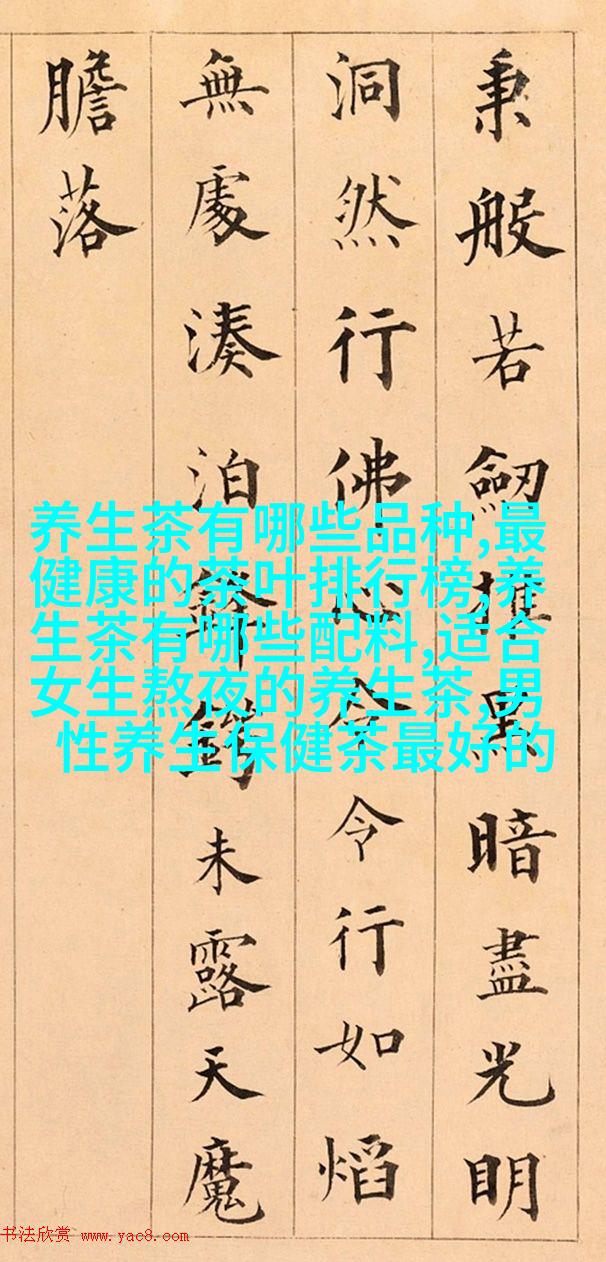 秉般若劔黑暗盡光明
洞然行佛心令令行如熖
無處湊泊未露天魔
膽落
养生茶有哪些品种,最
健康的茶叶排行榜,养
生茶有哪些配料,适合
女生熬夜的养生茶,男
性养生保健茶最好的
书法欣赏 www.yac8.com